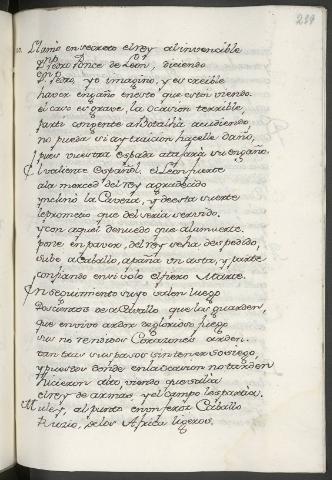 289
Llamó en secreto el rey al invencible
Dn Pedro Ponce de León, diciendo
Dn Pedro, yo imagino, y es creible
haver engaño en esto que estoy viendo.
el caso es grave la ocasion terrible,
parti con gente a Batalha acudiendo
no pueda si ay traicion hacelle daño,
pues vuestra espada atajará su engaño.
El valiente Español, el León fuerte
a la merced del rey agradecido
ynclinó la Caveza, y de esta suerte
le prometio que del sería servido.
y con aquel denuedo que a la muerte
pone en pavor, del rey se ha despedido,
sube a Caballo, apaña un asta, y parte
confiando en si solo el fiero Marte.
En seguimiento suyo salen luego
Doscientos de a Cavallo que las guarden,
que en vivo ardor
sus no rendidos Corazones arden.
tan tras sus pasos sin tener sosiego,
y puestos donde en la ocasion no tarden
hicieron alto, viendo que salía
el rey de armas, y el Campo les
Muley, al punto en un feroz Caballo
Rucio, de los Africa ligeros,